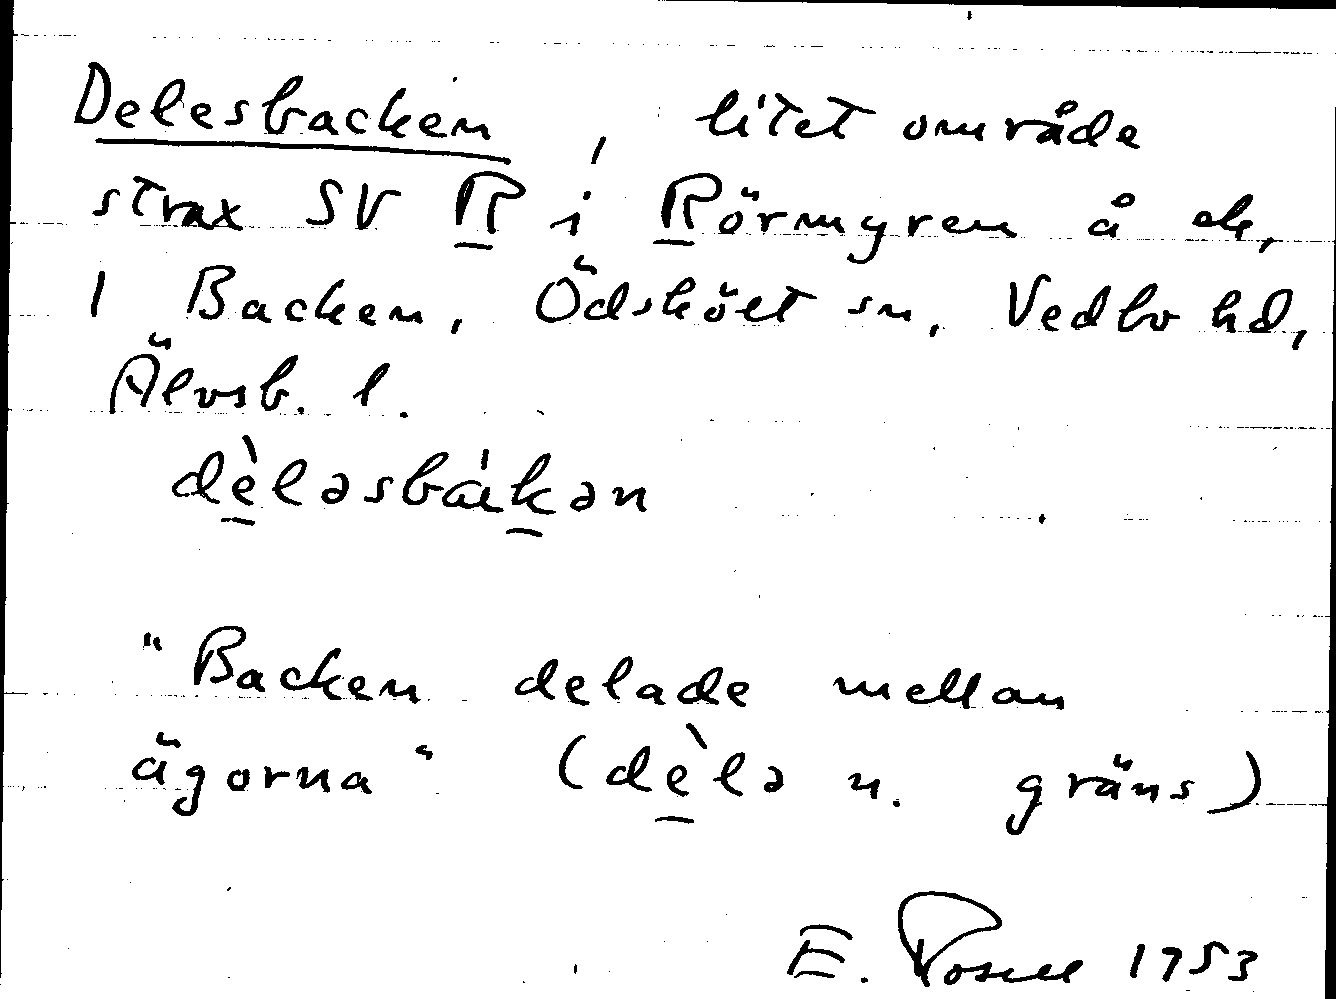 Delesbacken, litet område
strax SV R i Rörmyren å ek,
1 Backen, Ödskölt sn, Vedbo hd,
Älvsb. l.
dèləsbákən
"Backen delade mellan
ägorna" (dèlə n. gräns)
E. 1953